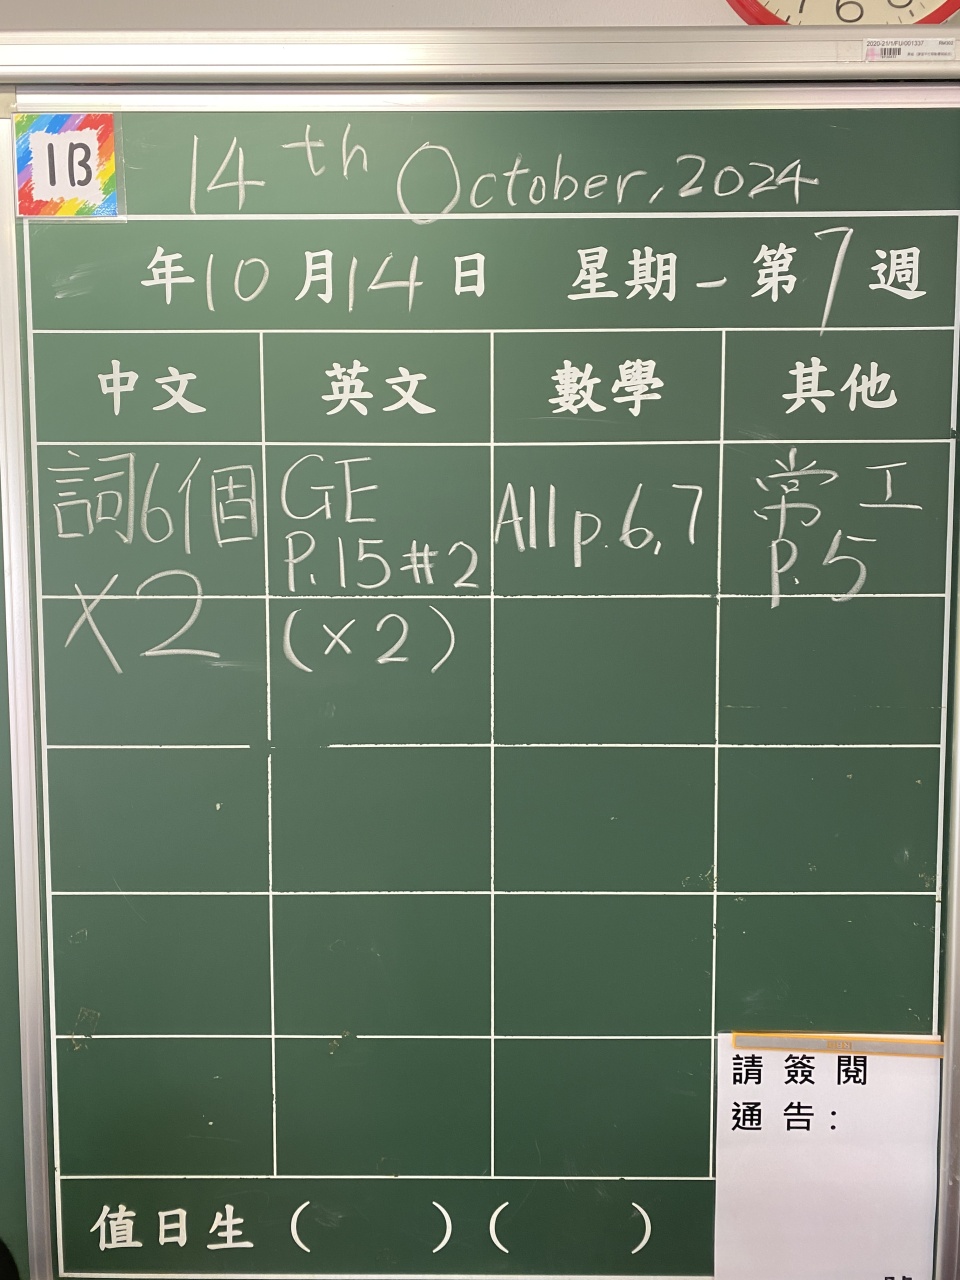 2020-21/1/FU/001337
1B
14th October, 2024
年10月14日 星期一 第7週
中文 英文 數學 其他
詞6個 GE All p.6,7 常工
P.15#2 P.5
×2 (×2)
請簽閱
通告:
值日生( )( )